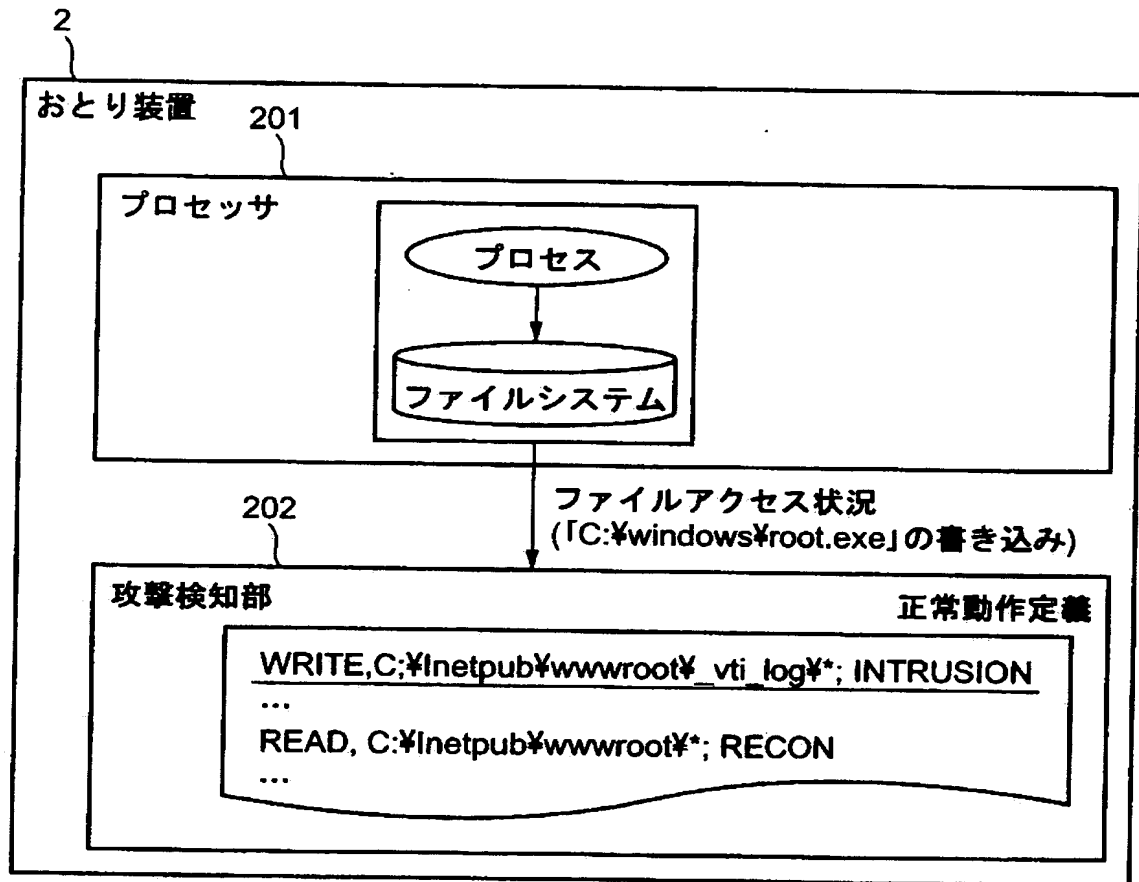 2
おとり装置
201
プロセッサ
プロセス
ファイルシステム
ファイルアクセス状況
(「C:¥windows¥root.exe」の書き込み)
202
攻撃検知部
正常動作定義
WRITE,C;¥Inetpub¥wwwroot¥_vti_log¥*; INTRUSION
...
READ, C:¥Inetpub¥wwwroot¥*; RECON
...